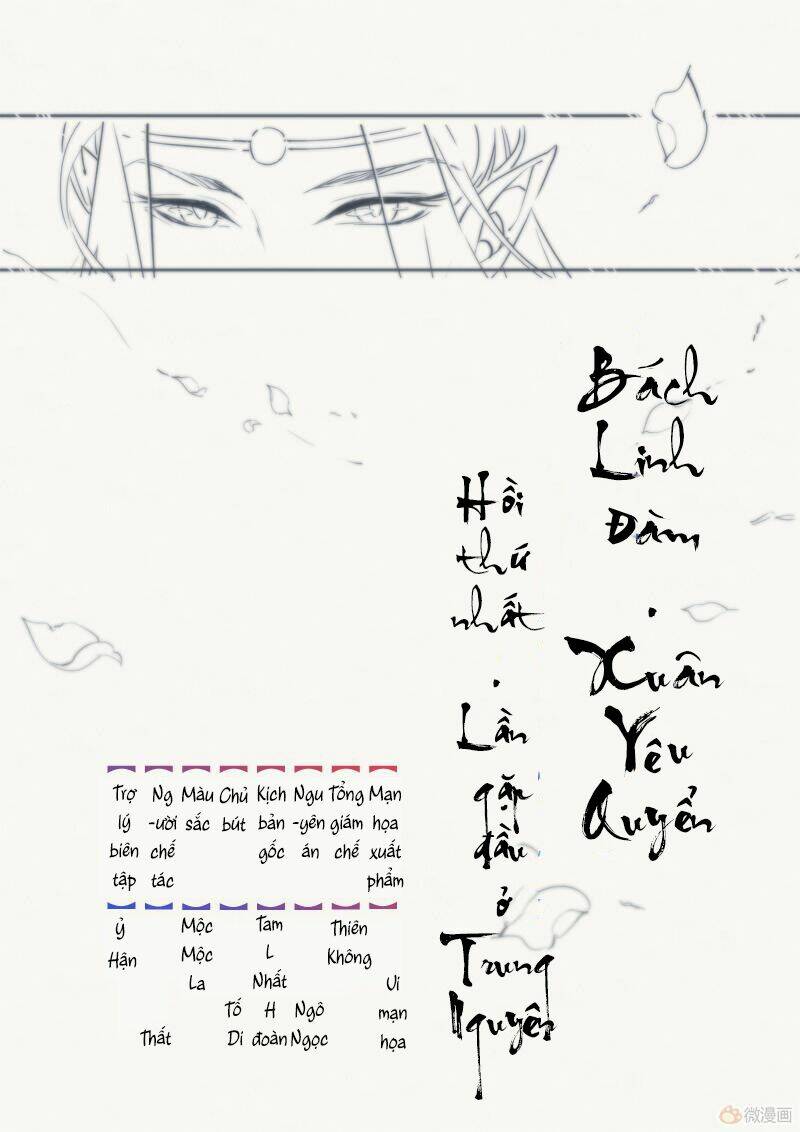 Bách
Linh
Đàm
.
Xuân
Yêu
Quyển
Hồi
thứ
nhất
.
Lần
gặp
đầu
ở
Trung
Nguyên
Mạn
họa
xuất
phẩm
Ui
mạn
họa
Tổng
giám
chế
Thiên
Không
Ngu
-yên
án
Ngô
Ngọc
Kịch
bản
gốc
Tam
L
Nhất
H
đoàn
Chủ
bút
Tố
Di
Màu
sắc
Mộc
Mộc
La
Ng
-ười
chế
tác
Thất
Trợ
lý
biên
tập
Ỷ
Hận
微漫画